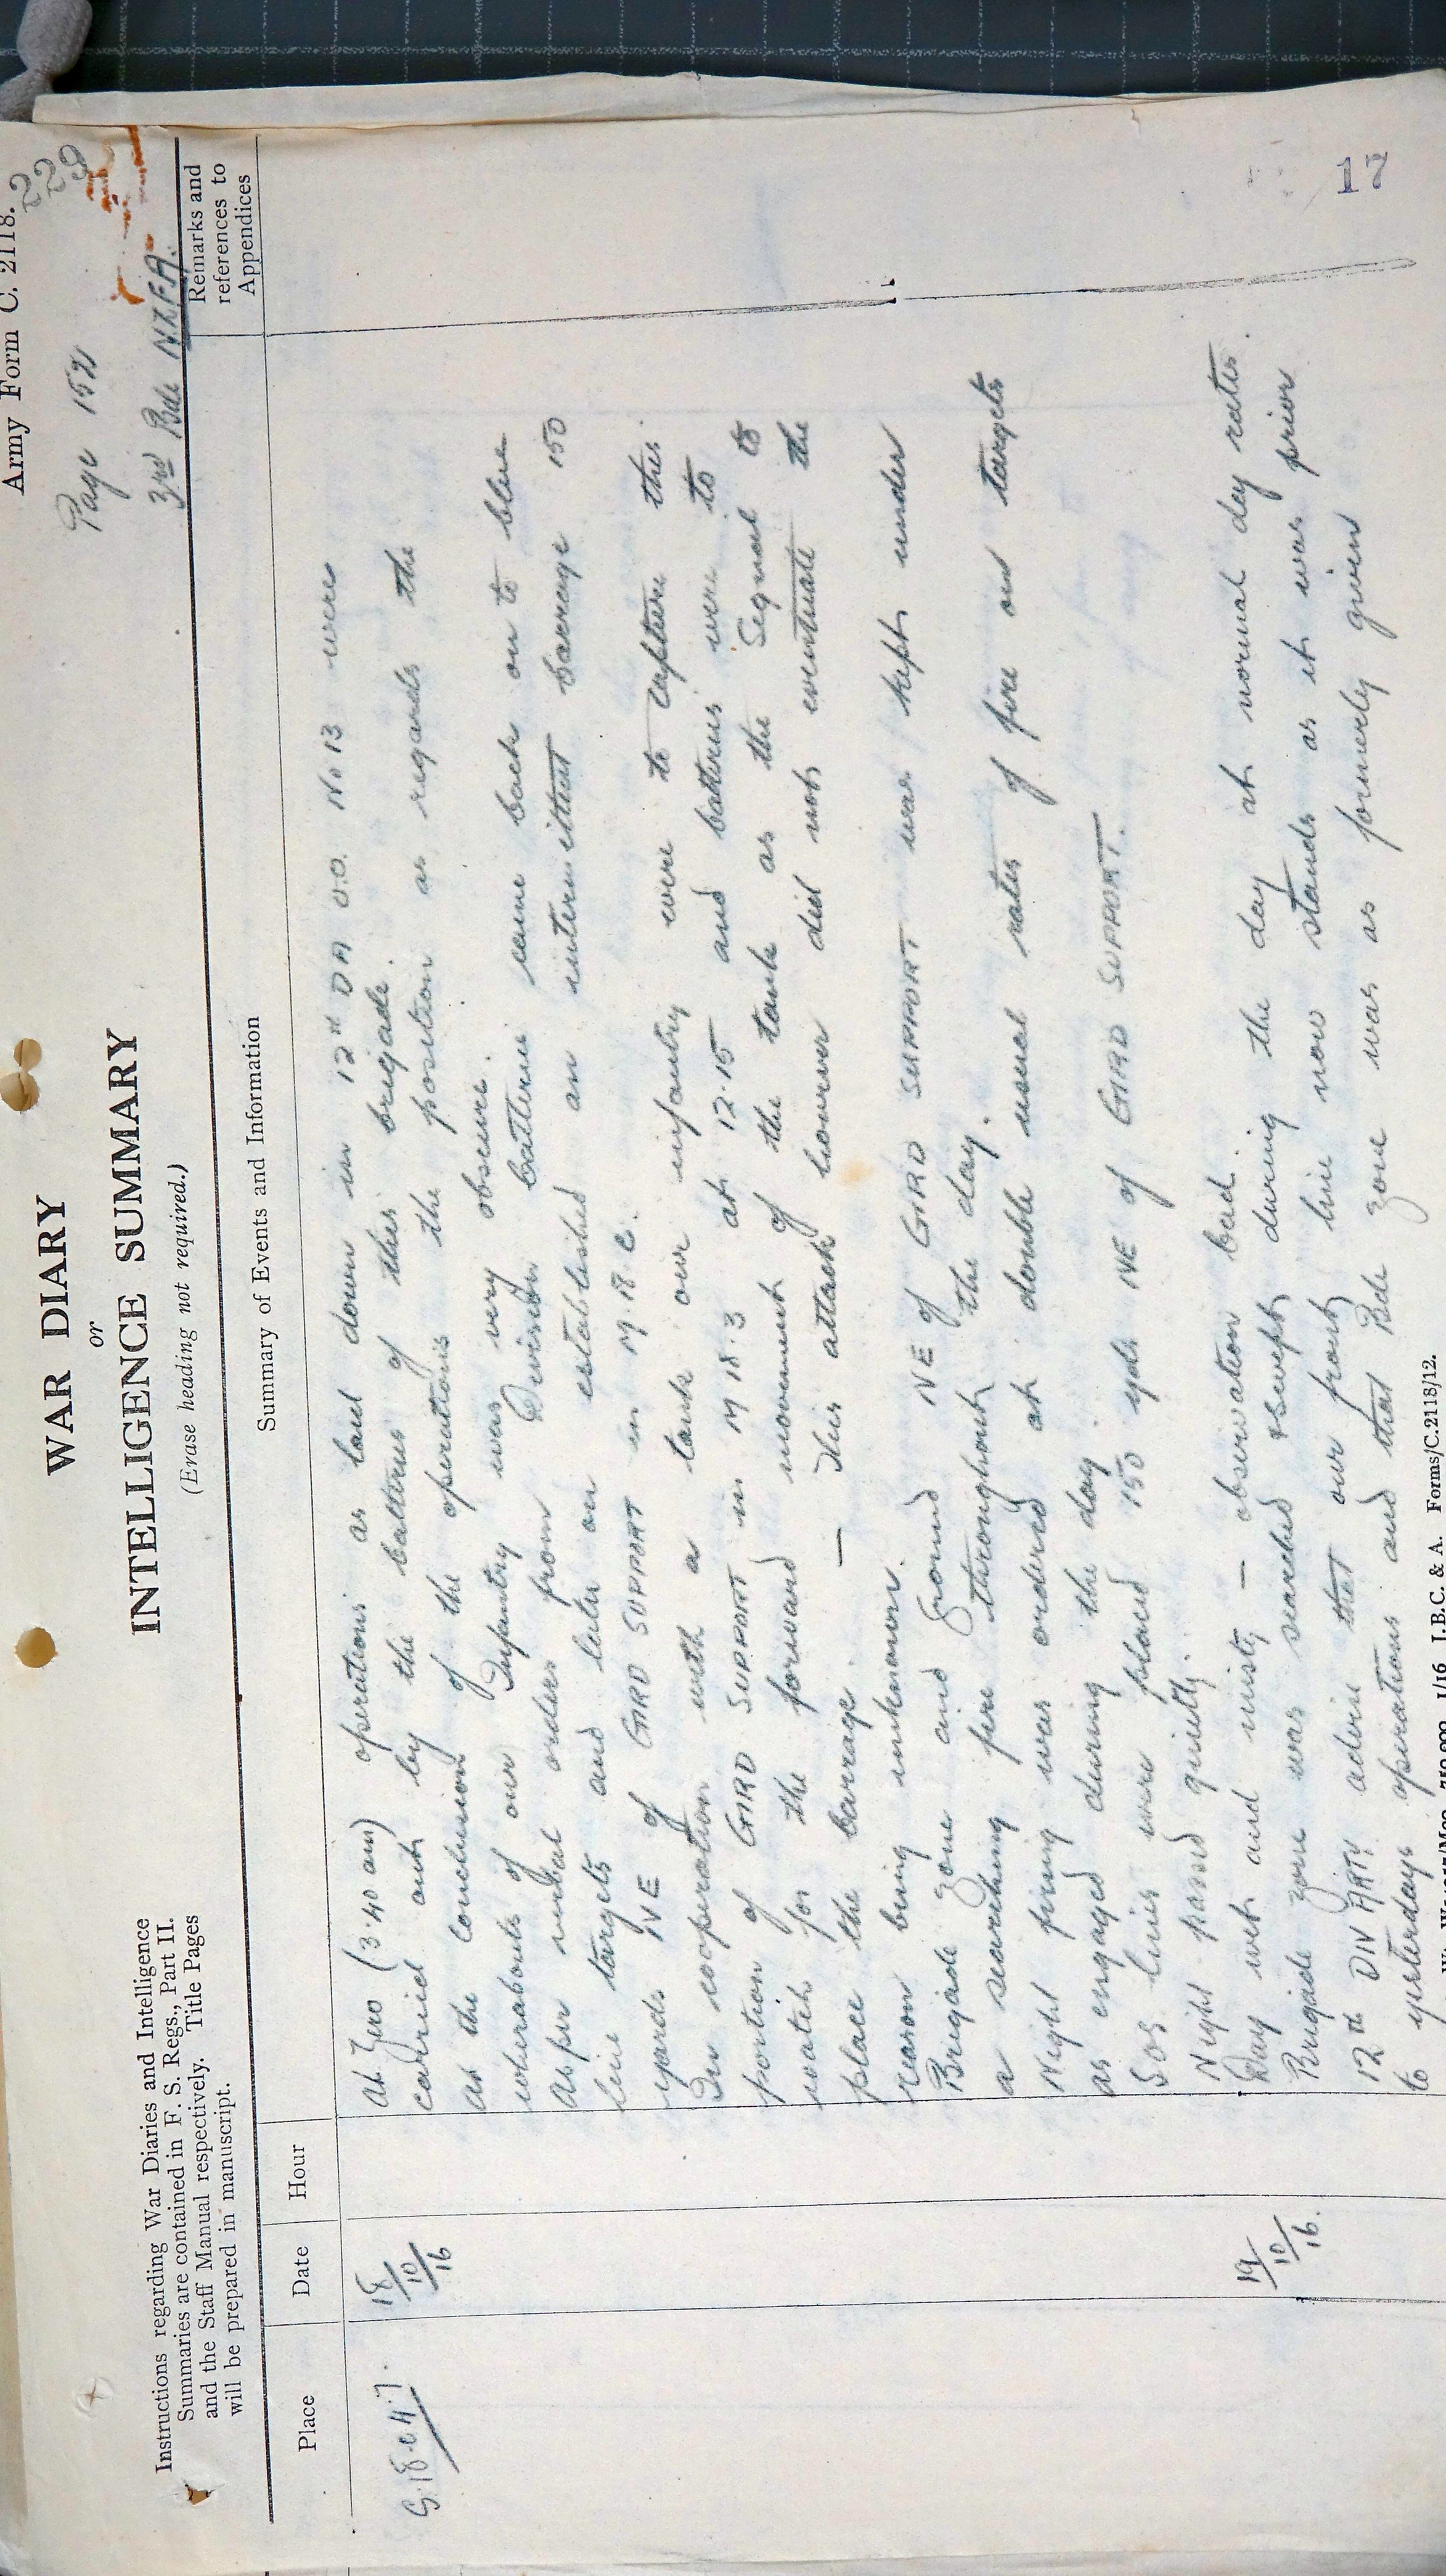 Army Form C. 2118.
229
Page 152
3rd Bde N.Z.F.A.
WAR DIARY
or
INTELLIGENCE SUMMARY
(Erase heading not required.)
Instructions regarding War Diaries and Intelligence
Summaries are contained in F. S. Regs., Part II.
and the Staff Manual respectively. Title Pages
will be prepared in manuscript.
Place
Date
Hour
Summary of Events and Information
Remarks and
references to
Appendices
18/10/16
At Zero (3.40 am) operations as laid down in 12th DA O.O. No 13 were
carried out by the batteries of this brigade.
At the conclusion of the operations the position as regards the
whereabouts of our Infantry was very obscure.
As per verbal orders from Division batteries came back on to blue
line targets and later on established an intermittent barrage 150
yards NE of GIRD SUPPORT in M.18.C.
In cooperation with a tank our infantry were to capture this
portion of GIRD SUPPORT in M 18.3 at 12.15 and batteries were to
watch for the forward movement of the tank as the Signal to
place the barrage. — This attack however did not eventuate the
reason being unknown.
Brigade zone and ground NE of GIRD SUPPORT was kept under
a searching fire throughout the day.
Night firing was ordered at double usual rates of fire on targets
as engaged during the day.
SOS lines were placed 150 yds NE of GIRD SUPPORT.
Night passed quietly.
19/10/16.
Day wet and misty — observation bad.
Brigade zone was searched & swept during the day at normal day rates.
12th DIV ARTY advise that our front line now stands as it was prior
to yesterdays operations and that Bde zone was as formerly given
Forms/C.2118/12.
J.B.C. & A.
17